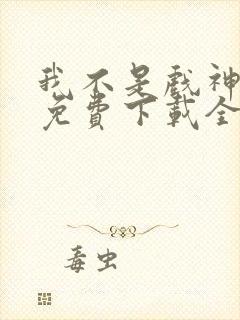 我不是戲神
免費下載全
毒虫